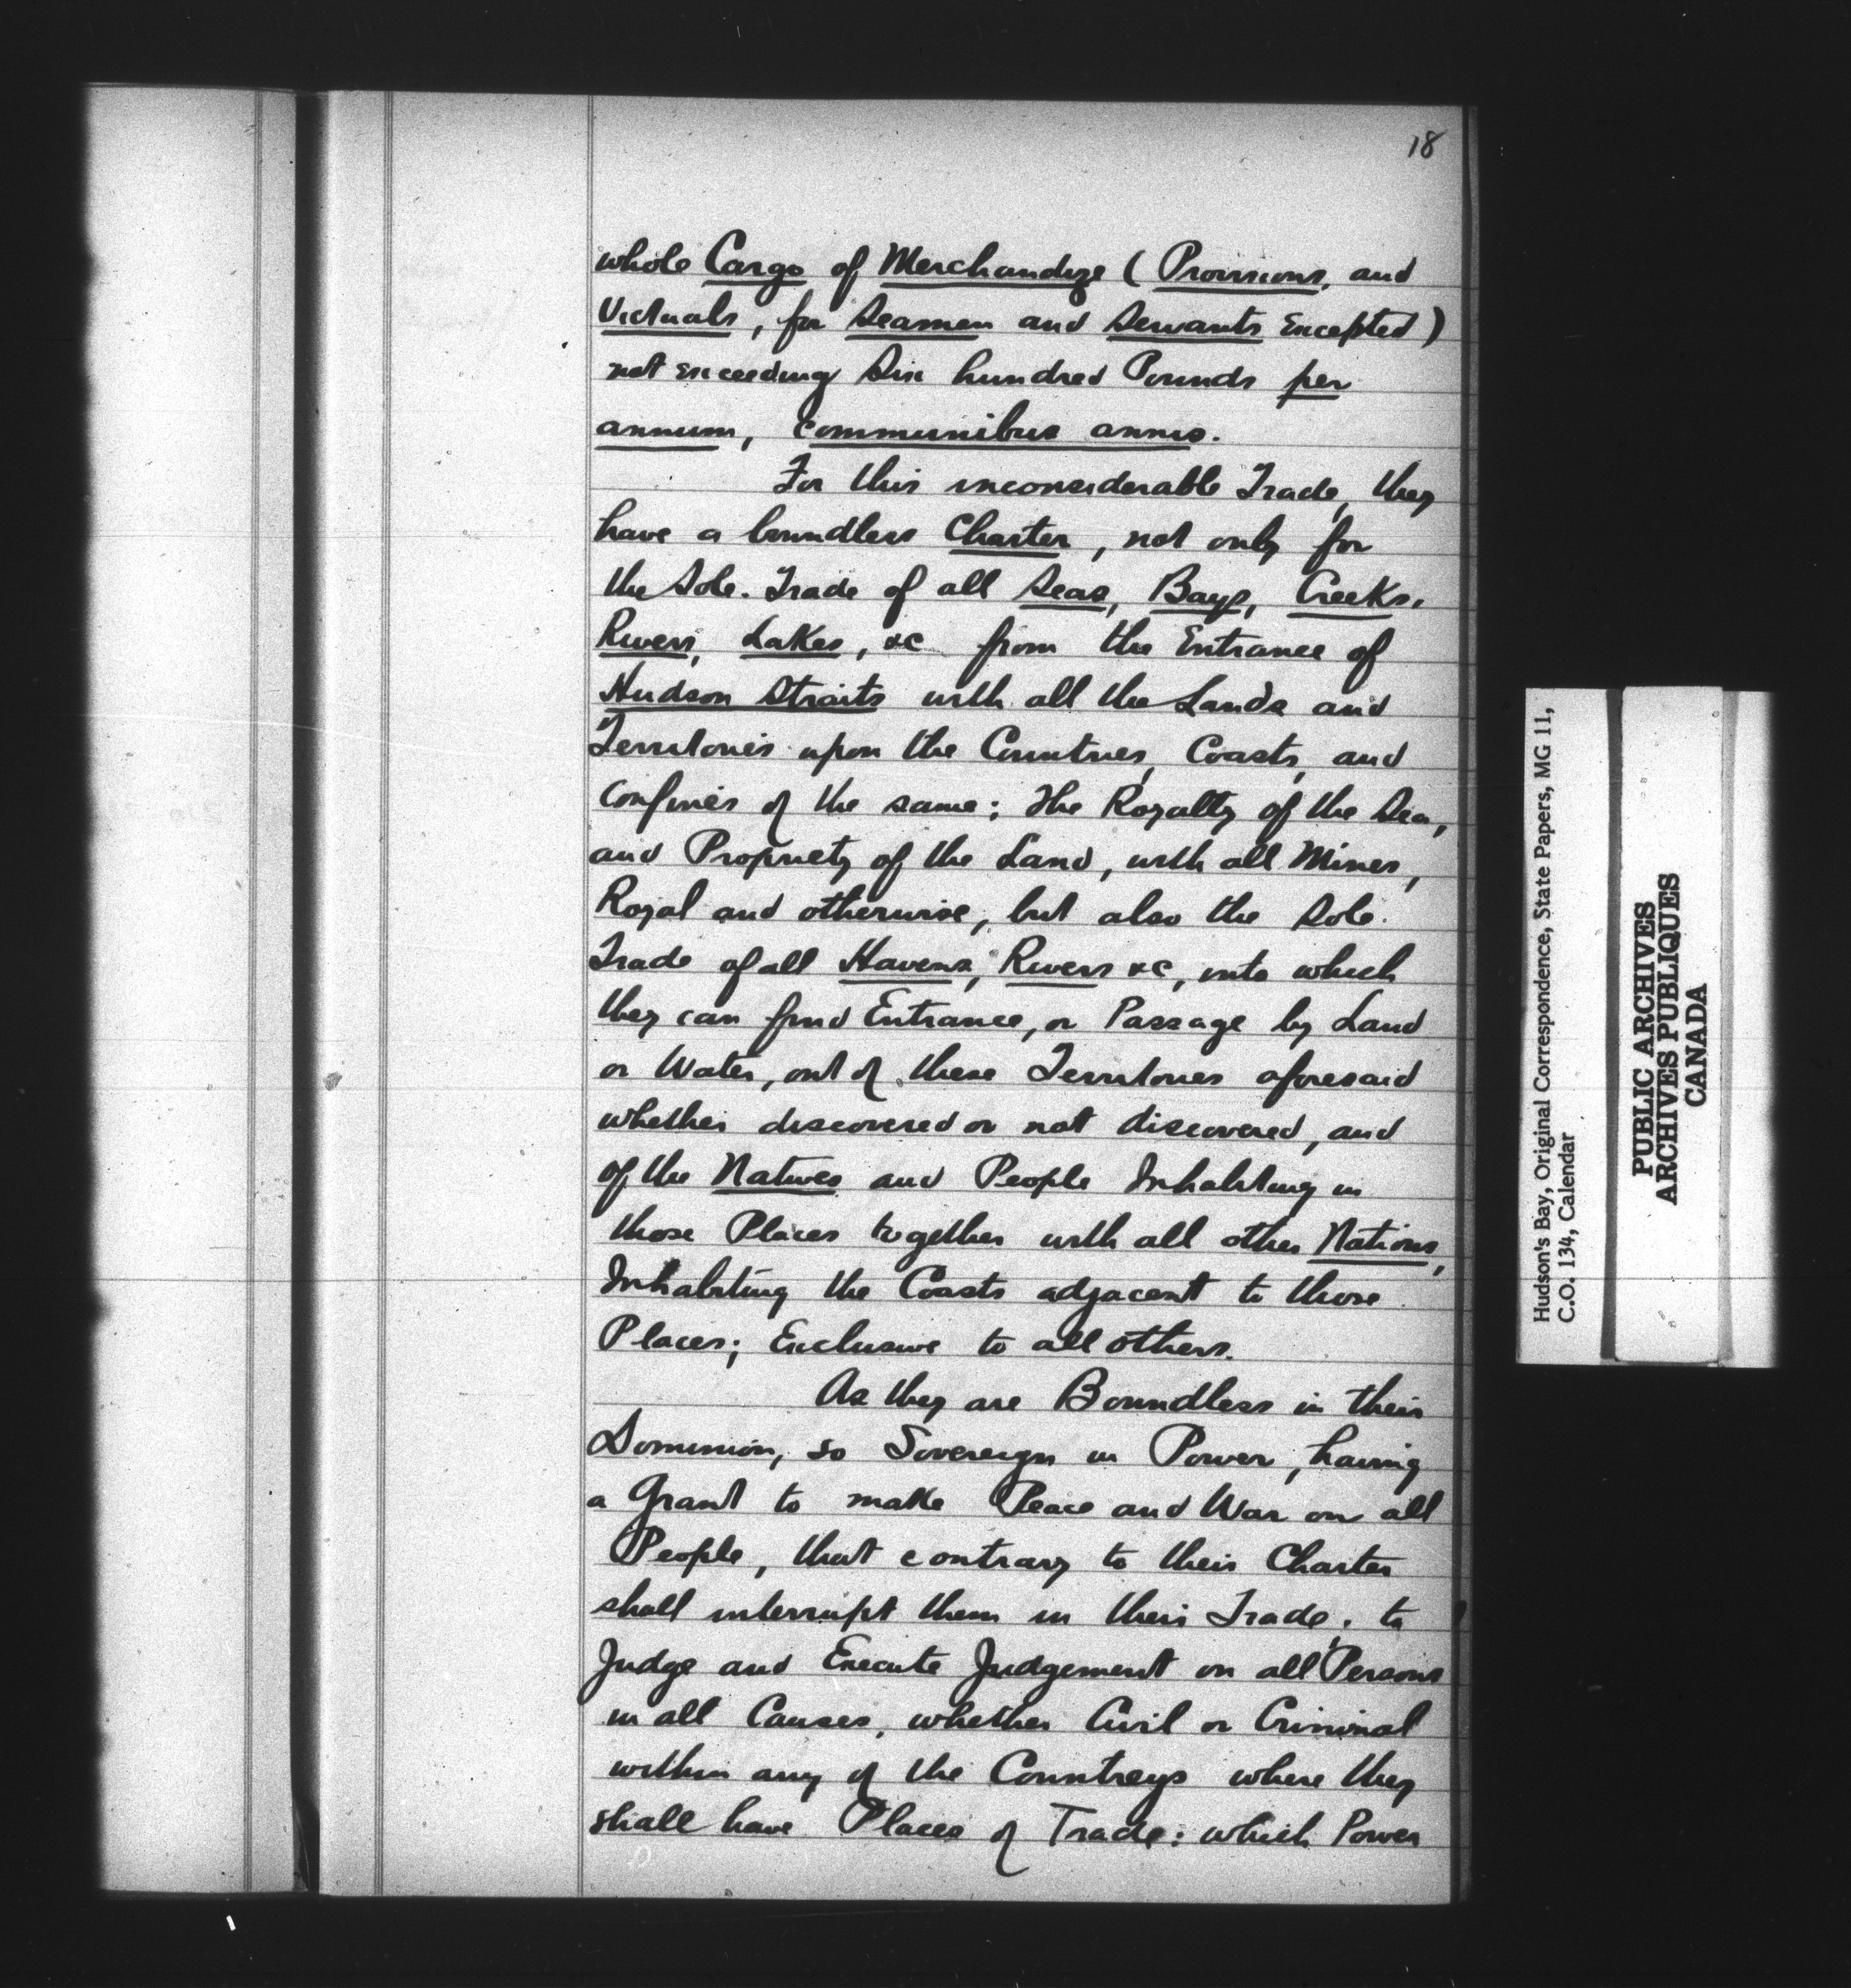 18
whole Cargo of Merchandize (Provisions, and
Victuals, for Seamen and Servants Excepted)
not exceeding Six hundred Pounds per
annum, communibus annis.
For this inconsiderable Trade, they
have a boundless Charter, not only for
the Sole. Trade of all Seas, Bays, Creeks,
Rivers, Lakes, &c from the Entrance of
Hudson Straits with all the Lands and
Territories upon the Countries, Coasts, and
confines of the same; the Royalty of the Sea,
and Propriety of the Land, with all Mines,
Royal and otherwise, but also the Sole.
Trade of all Havens, Rivers &c, into which
they can find Entrance, or Passage by Land
or Water, out of these Territories aforesaid
whether discovered or not discovered, and
of the Natives and People Inhabiting in
those Places together with all other Nations,
Inhabiting the Coasts adjacent to those
Places; Exclusive to all others.
As they are Boundless in their
Dominion, so Sovereign in Power, having
a Grant to make Peace and War on all
People, that contrary to their Charter
shall interrupt them in their Trade, to
Judge and Execute Judgement on all Persons
in all Causes, whether Civil or Criminal
within any of the Countreys where they
shall have Places of Trade: which Power
Hudson's Bay, Original Correspondence, State Papers, MG 11,
C.O. 134, Calendar
PUBLIC ARCHIVES
ARCHIVES PUBLIQUES
CANADA